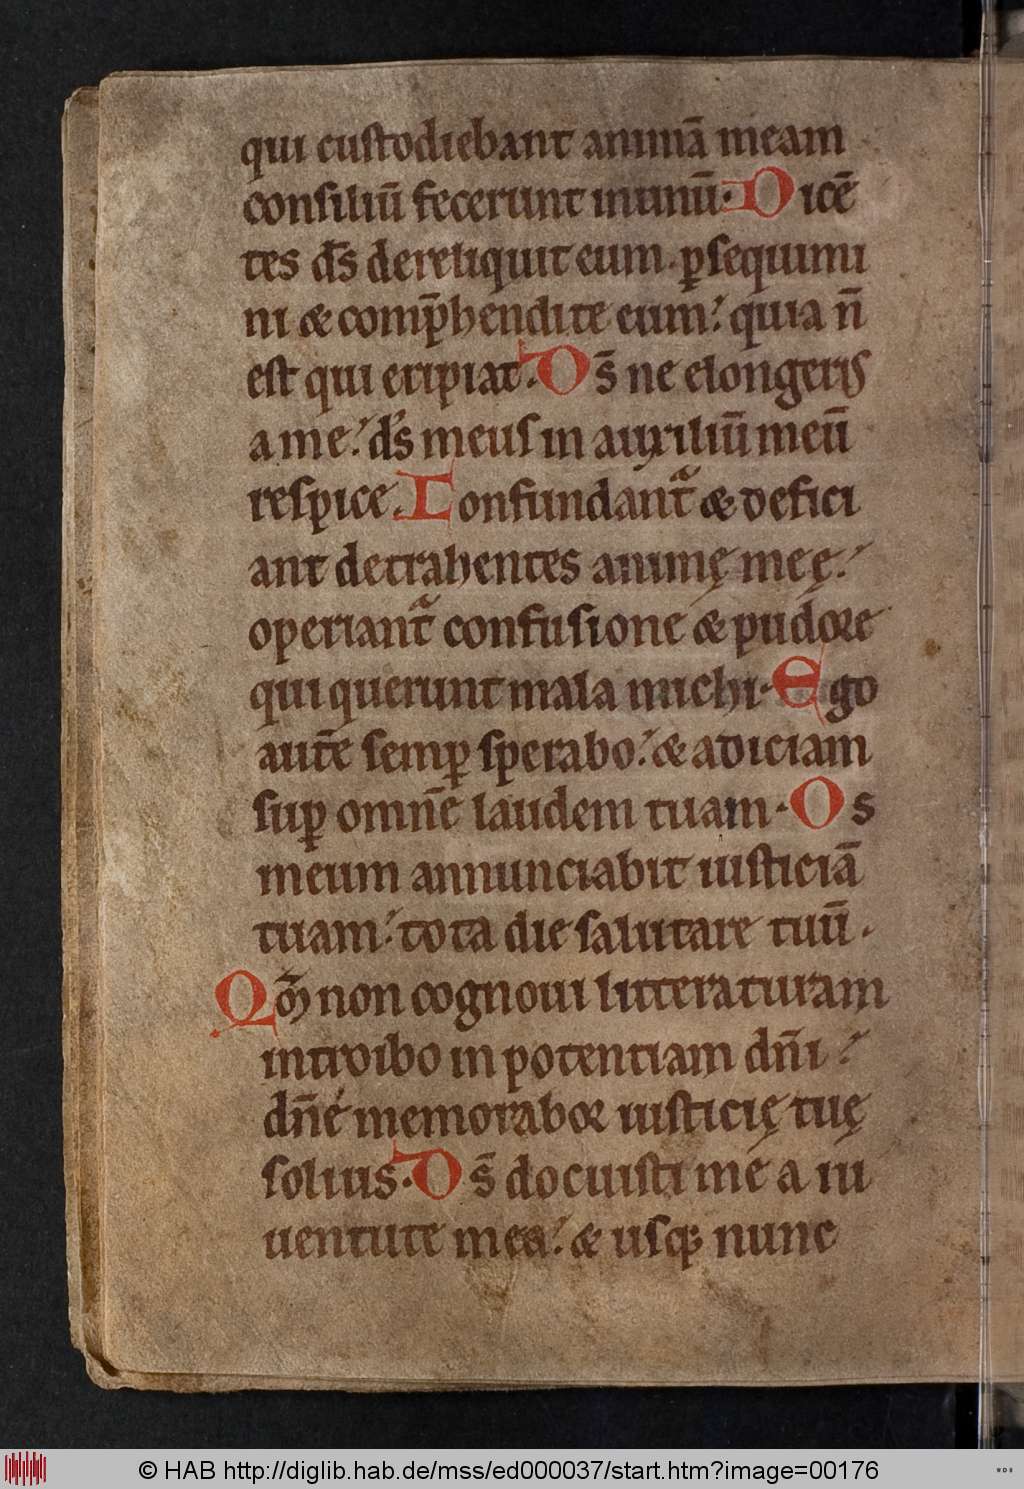 qui custodiebant animā meam
consiliū fecerunt inunū. Dicē
tes dṡ dereliquit eum. ꝑsequimi
ni & comp̄hendite eum: quia n̄
est qui eripiat. Ds̄ ne elongeris
a me: ds̄ meus in auxiliū meū
respice. Confundant᷑ & defici
ant detrahentes animę meę:
operiant᷑ confusione & pudore
qui querunt mala michi. Ego
autē semꝑ sperabo: & adiciam
suꝑ omnē laudem tuam. Os
meum annunciabit iusticiā
tuam: tota die salutare tuū.
Qm̄ non cognoui litteraturam
introibo in potentiam dn̄i:
dn̄e memorabor iusticię tuę
solius. Ds̄ docuisti me a iu
uentute mea: & usq; nunc
© HAB http://diglib.hab.de/mss/ed000037/start.htm?image=00176